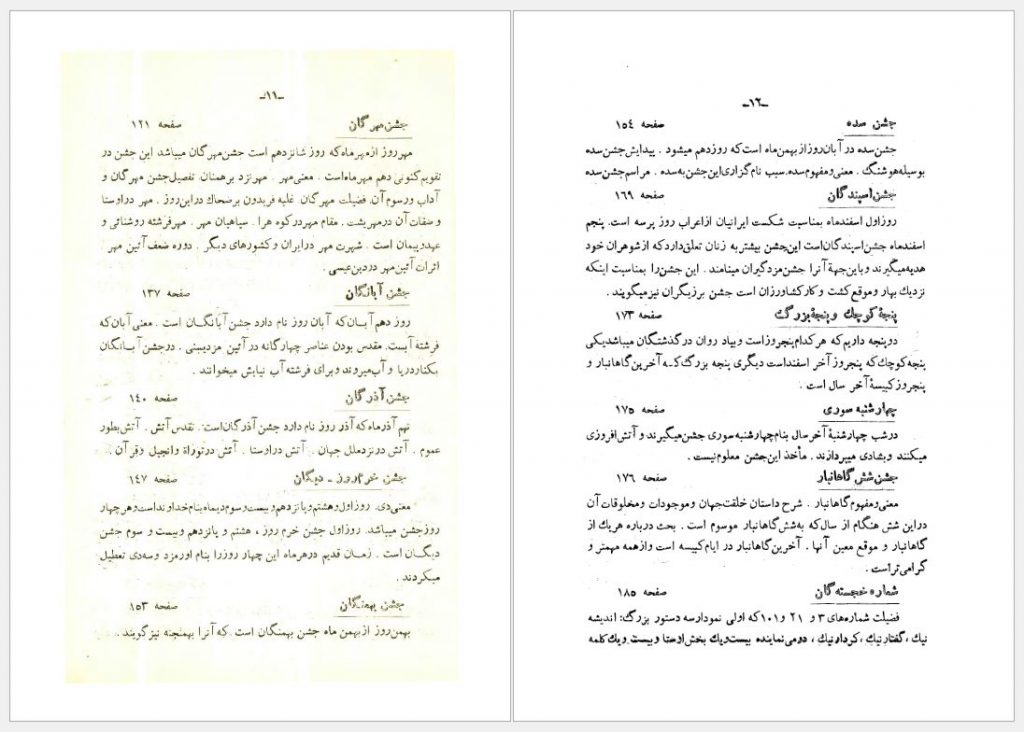 -۱۱-
جشن مهرگان صفحه ۱۲۱
مهر روز از مهر ماه که روز شانزدهم است جشن مهرگان میباشد این جشن در
تقویم کنونی دهم مهر ماه است . معنی مهر . مهر نزد برهمنان. تفصیل جشن مهرگان و
آداب و رسوم آن. فضیلت مهرگان. غلبه فریدون بر ضحاك در این روز . مهر در اوستا
و صفات آن در مهر یشت. مقام مهر در کوه هرا . سپاهیان مهر . مهر فرشته روشنائی و
عهد و پیمان است . شهرت مهر در ایران و کشورهای دیگر . دوره ضعف آئین مهر .
اثرات آئین مهر در دین عیسی .
جشن آبانگان صفحه ۱۳۷
روز دهم آبان که آبان روز نام دارد جشن آبانگان است . معنی آبان که
فرشته آبست. مقدس بودن عناصر چهارگانه در آئین مزدیسنی . در جشن آبانگان
بکنار دریا و آب میروند و برای فرشته آب نیایش میخوانند .
جشن آذرگان صفحه ۱۴۰
نهم آذر ماه که آذر روز نام دارد جشن آذرگان است . تقدس آتش . آتش بطور
عموم . آتش در نزد ملل جهان . آتش در اوستا . آتش در توراة و انجیل و قرآن .
جشن خرم روز - دیگان صفحه ۱۴۷
معنی دی. روز اول و هشتم و پانزدهم و بیست و سوم دیماه بنام خداوند است و هر چهار
روز جشن میباشد. روز اول جشن خرم روز ، هشتم و پانزدهم و بیست و سوم جشن
دیگان است . زمان قدیم در هر ماه این چهار روز را بنام اورمزد و سه دی تعطیل
میکردند .
جشن بهمنگان صفحه ۱۵۳
بهمن روز از بهمن ماه جشن بهمنگان است که آنرا بهمنجنه نیز گویند .
-۱۲-
جشن سده صفحه ۱۵۴
جشن سده در آبان روز از بهمن ماه است که روز دهم میشود . پیدایش جشن سده
بوسیله هوشنگ . معنی و مفهوم سده. سبب نام گزاری این جشن به سده . مراسم جشن سده
جشن اسپندگان صفحه ۱۶۹
روز اول اسفند ماه بمناسبت شکست ایرانیان از اعراب روز پرسه است. پنجم
اسفند ماه جشن اسپندگان است این جشن بیشتر به زنان تعلق دارد که از شوهران خود
هدیه میگیرند و باین جهة آنرا جشن مزد گیران مینامند . این جشن را بمناسبت اینکه
نزدیك بهار و موقع کشت و کار کشاورزان است جشن برزیگران نیز میگویند .
پنجهٔ کوچك و پنجهٔ بزرگ صفحه ۱۷۳
دو پنجه داریم که هر کدام پنجروز است و بیاد روان در گذشتگان میباشد یکی
پنجه کوچك که پنجروز آخر اسفند است دیگری پنجه بزرگ که آخرین گاهانبار و
پنجروز کبیسهٔ آخر سال است .
چهارشنبه سوری صفحه ۱۷۵
در شب چهارشنبهٔ آخر سال بنام چهارشنبه سوری جشن میگیرند و آتش افروزی
میکنند و بشادی میپردازند . مأخذ این جشن معلوم نیست .
جشن شش گاهانبار صفحه ۱۷۶
معنی و مفهوم گاهانبار . شرح داستان خلقت جهان و موجودات و مخلوقات آن
در این شش هنگام از سال که به شش گاهانبار موسوم است . بحث درباره هر یك از
گاهانبار و موقع معین آنها . آخرین گاهانبار در ایام کبیسه است و از همه مهمتر و
گرامی تر است .
شماره خجسته گان صفحه ۱۸۵
فضیلت شماره های ۳ و ۲۱ و ۱۰۱ که اولی نمودار سه دستور بزرگ: اندیشه
نیك ،گفتار نیك ، کردار نیك ، دومی نماینده بیست و یك بخش اوستا و بیست و یك کلمه